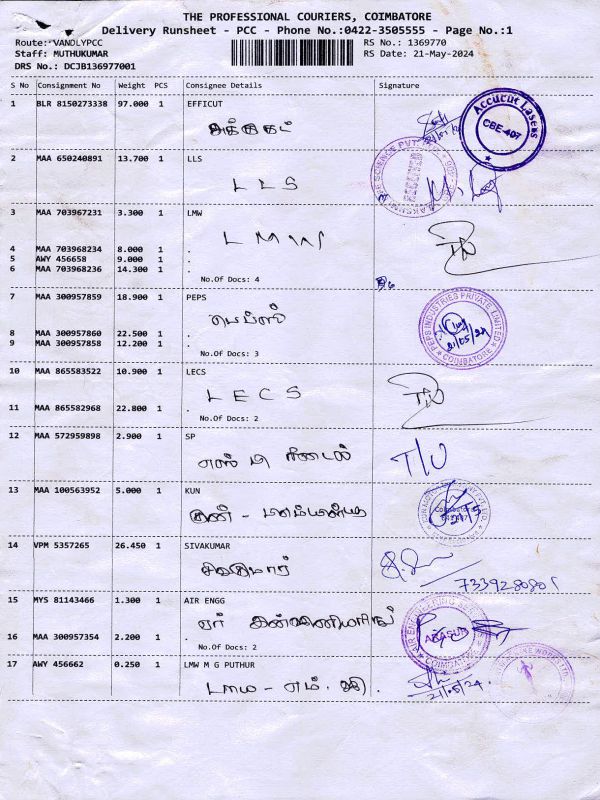 THE PROFESSIONAL COURIERS, COIMBATORE
Delivery Runsheet - PCC - Phone No.:0422-3505555 - Page No.:1
Route: VANDLYPCC RS No.: 1369770
Staff: MUTHUKUMAR RS Date: 21-May-2024
DRS No.: DCJB136977001
S No Consignment No Weight PCS Consignee Details Signature
1 BLR 8150273338 97.000 1 EFFICUT
Accucut Lasers
CBE-407
2 MAA 650240891 13.700 1 LLS
LLS
3 MAA 703967231 3.300 1 LMW
LMW
4 MAA 703968234 8.000 1 .
5 AWY 456658 9.000 1 .
6 MAA 703968236 14.300 1 .
No.Of Docs: 4
7 MAA 300957859 18.900 1 PEPS
பெப்ஸ்
PEPS INDUSTRIES PRIVATE LIMITED
21/05/24
COIMBATORE
8 MAA 300957860 22.500 1 .
9 MAA 300957858 12.200 1 .
No.Of Docs: 3
10 MAA 865583522 10.900 1 LECS
LECS
11 MAA 865582968 22.800 1 .
No.Of Docs: 2
12 MAA 572959898 2.900 1 SP
T/U
13 MAA 100563952 5.000 1 KUN
குன் -
14 VPM 5357265 26.450 1 SIVAKUMAR
சிவகுமார்
7339280801
15 MYS 81143466 1.300 1 AIR ENGG
ஏர்
COIMBATORE
16 MAA 300957354 2.200 1 .
No.Of Docs: 2
17 AWY 456662 0.250 1 LMW M G PUTHUR
21/05/24